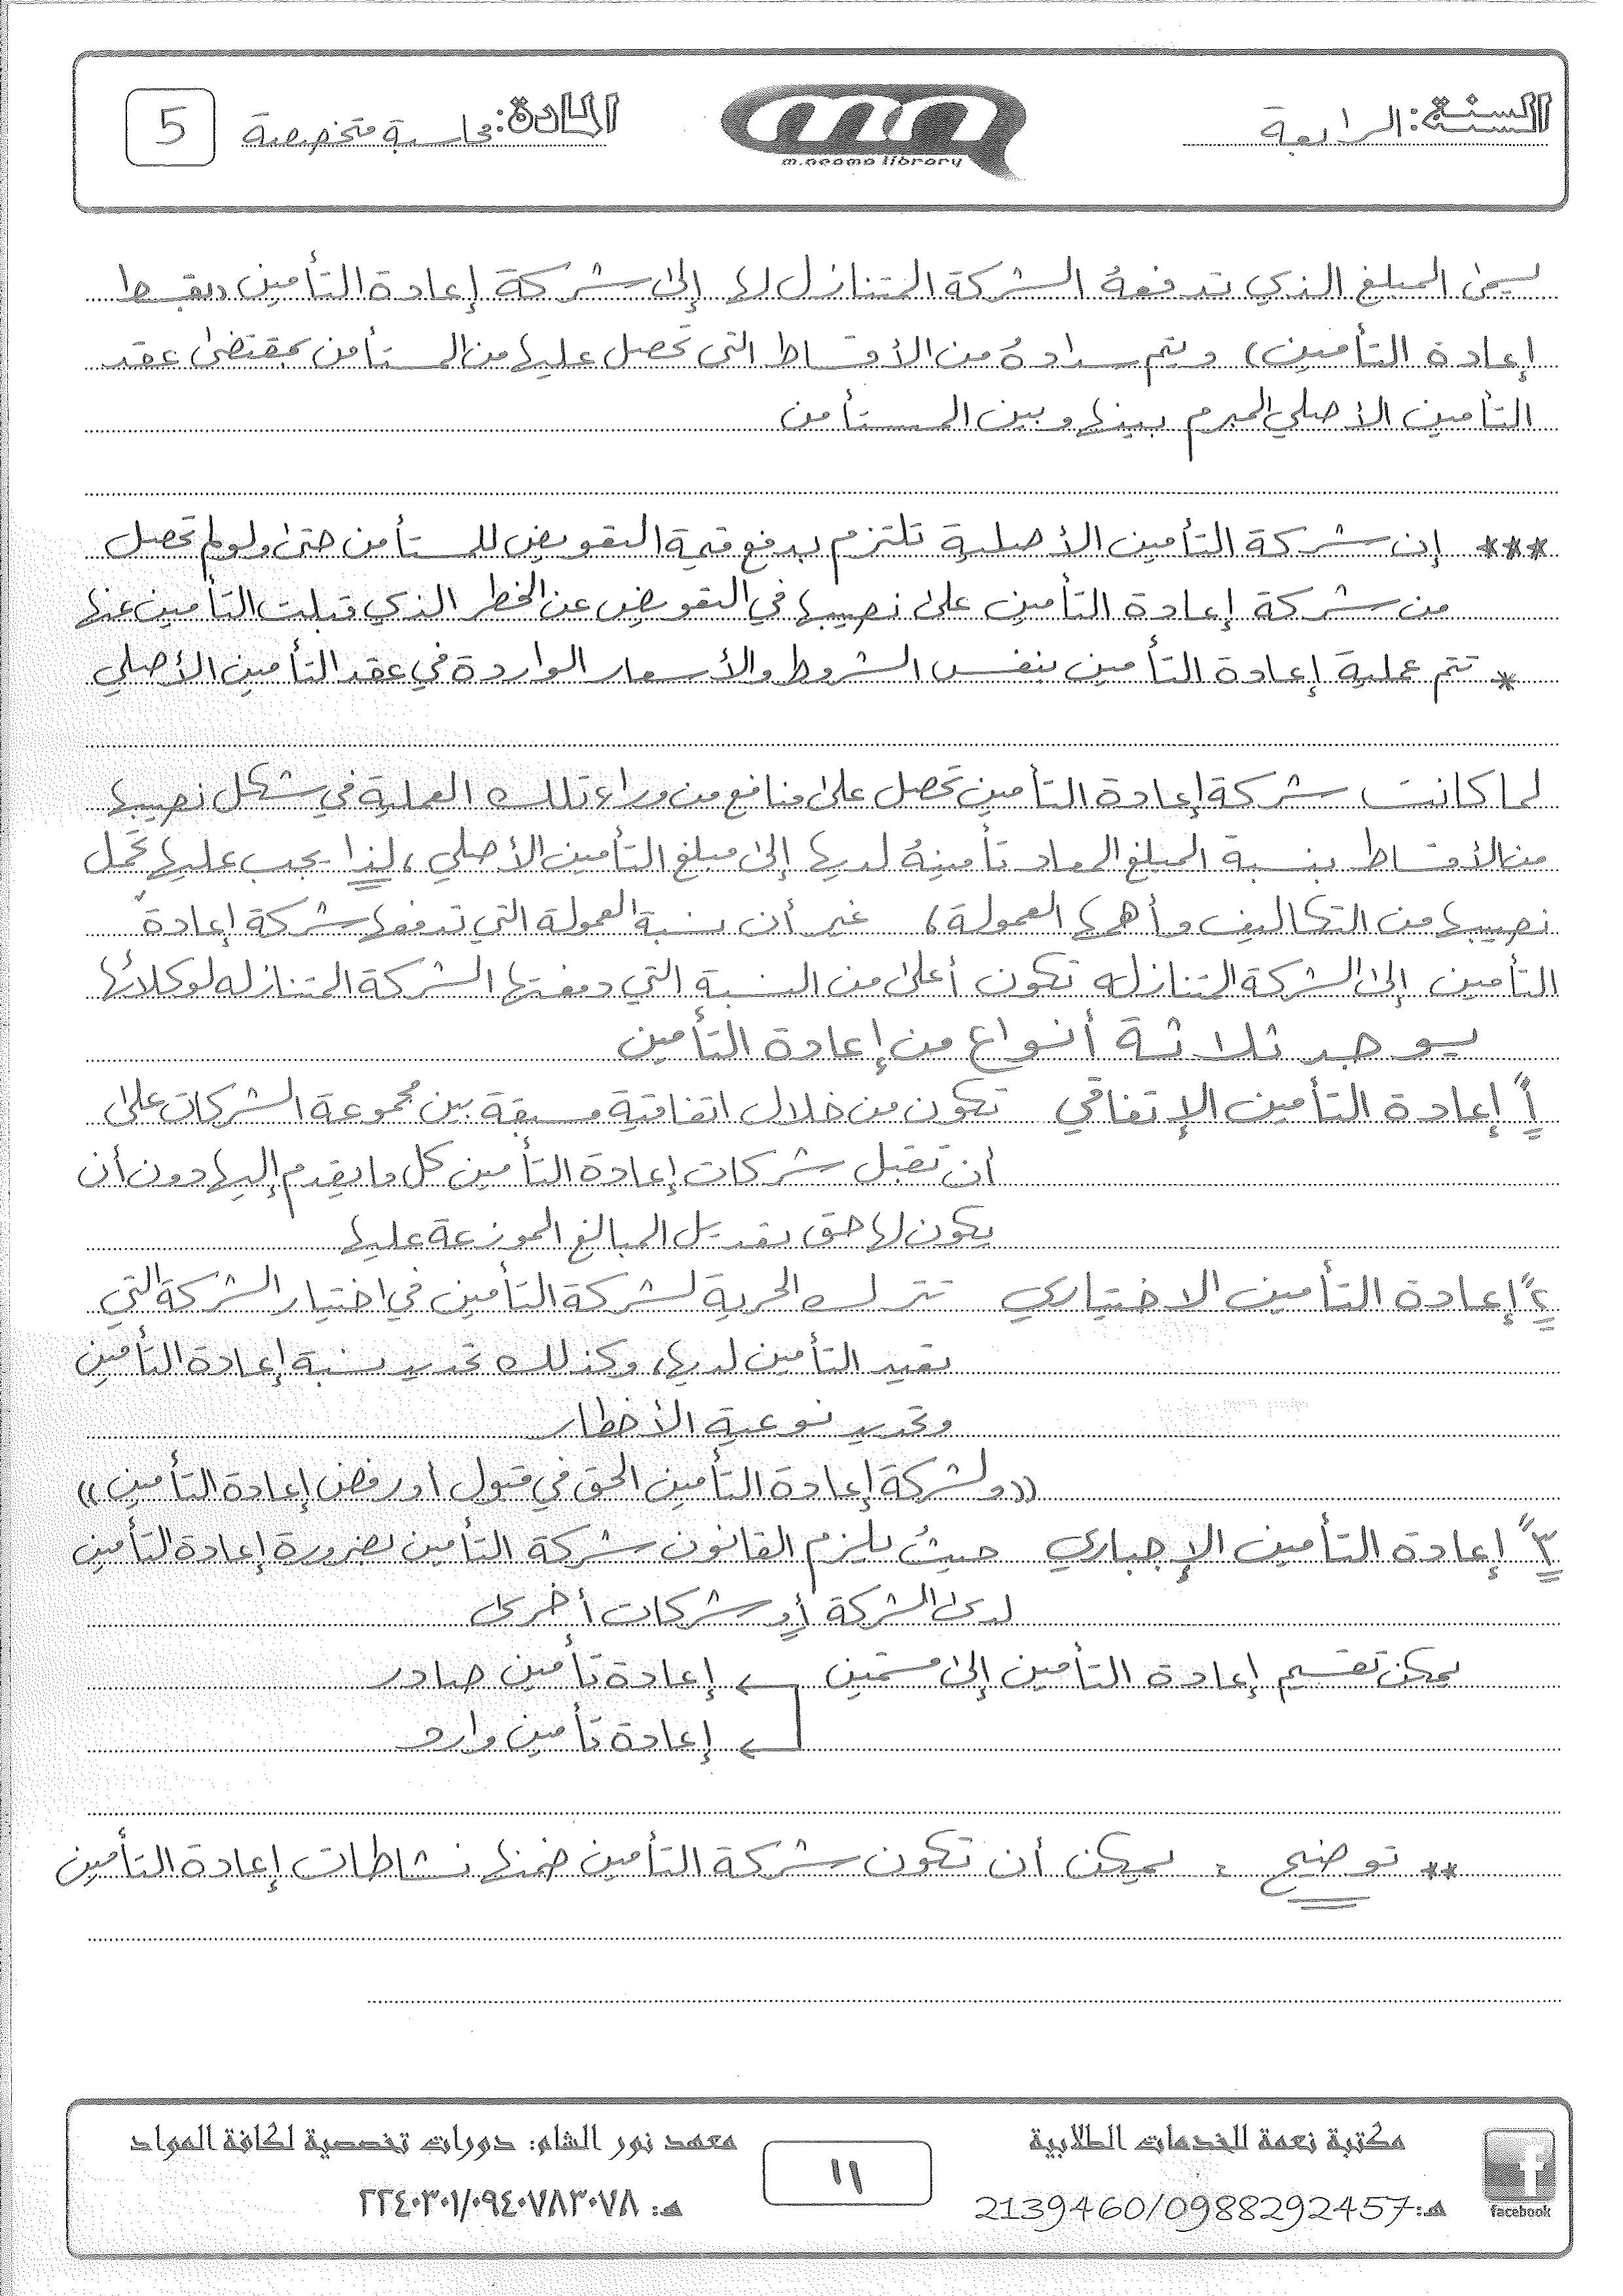 السنة: الرابعة
m.neama library
المادة: محاسبة متخصصة
5
يسمى المبلغ الذي تدفعهُ الشركة المتنازل لها إلى شركة إعادة التأمين ((بقسط
إعادة التأمين)) ويتم سدادهُ من الأقساط التي تحصل عليها من المستأمن بمقتضى عقد
التأمين الأصلي المبرم بينها وبين المستأمن
*** إن شركة التأمين الأصلية تلتزم بدفع قيمة التعويض للمستأمن حتى ولو لم تحصل
من شركة إعادة التأمين على نصيبها في التعويض عن الخطر الذي قبلت التأمين عنها
* تتم عملية إعادة التأمين بنفس الشروط والأسعار الواردة في عقد التأمين الأصلي
لما كانت شركة إعادة التأمين تحصل على منافع من وراء تلك العملية في شكل نصيبها
من الأقساط بنسبة المبلغ المعاد تأمينهُ لديها إلى مبلغ التأمين الأصلي، لذا يجب عليها تحمل
نصيبها من التكاليف وأهمها العمولة، غير أن نسبة العمولة التي تدفعها شركة إعادة
التأمين إلى الشركة المتنازله تكون أعلى من النسبة التي دفعتها الشركة المتنازله لوكلائها
يوجد ثلاثة أنواع من إعادة التأمين
١ً إعادة التأمين الإتفاقي تكون من خلال اتفاقية مسبقة بين مجموعة الشركات على
أن تقبل شركات إعادة التأمين كل ما يقدم إليها دون أن
يكون لها حق تعديل المبالغ الموزعة عليها
٢ً إعادة التأمين الاختياري تترك الحرية لشركة التأمين في اختيار الشركة التي
تعيد التأمين لديها، وكذلك تحديد نسبة إعادة التأمين
وتحديد نوعية الأخطار
((ولشركة إعادة التأمين الحق في قبول أو رفض إعادة التأمين))
٣ً إعادة التأمين الإجباري حيثُ يلزم القانون شركة التأمين بضرورة إعادة التأمين
لدى الشركة أو شركات أخرى
يمكن تقسيم إعادة التأمين إلى قسمين ← إعادة تأمين صادر
← إعادة تأمين وارد
** توضيح : يمكن أن تكون شركة التأمين ضمنها نشاطات إعادة التأمين
facebook
مكتبة نعمة للخدمات الطلابية
هـ: 2139460/0988292457
١١
معهد نور الشام: دورات تخصصية لكافة المواد
هـ: ٢٢٤٠٣٠١/٠٩٤٠٧٨٣٠٧٨